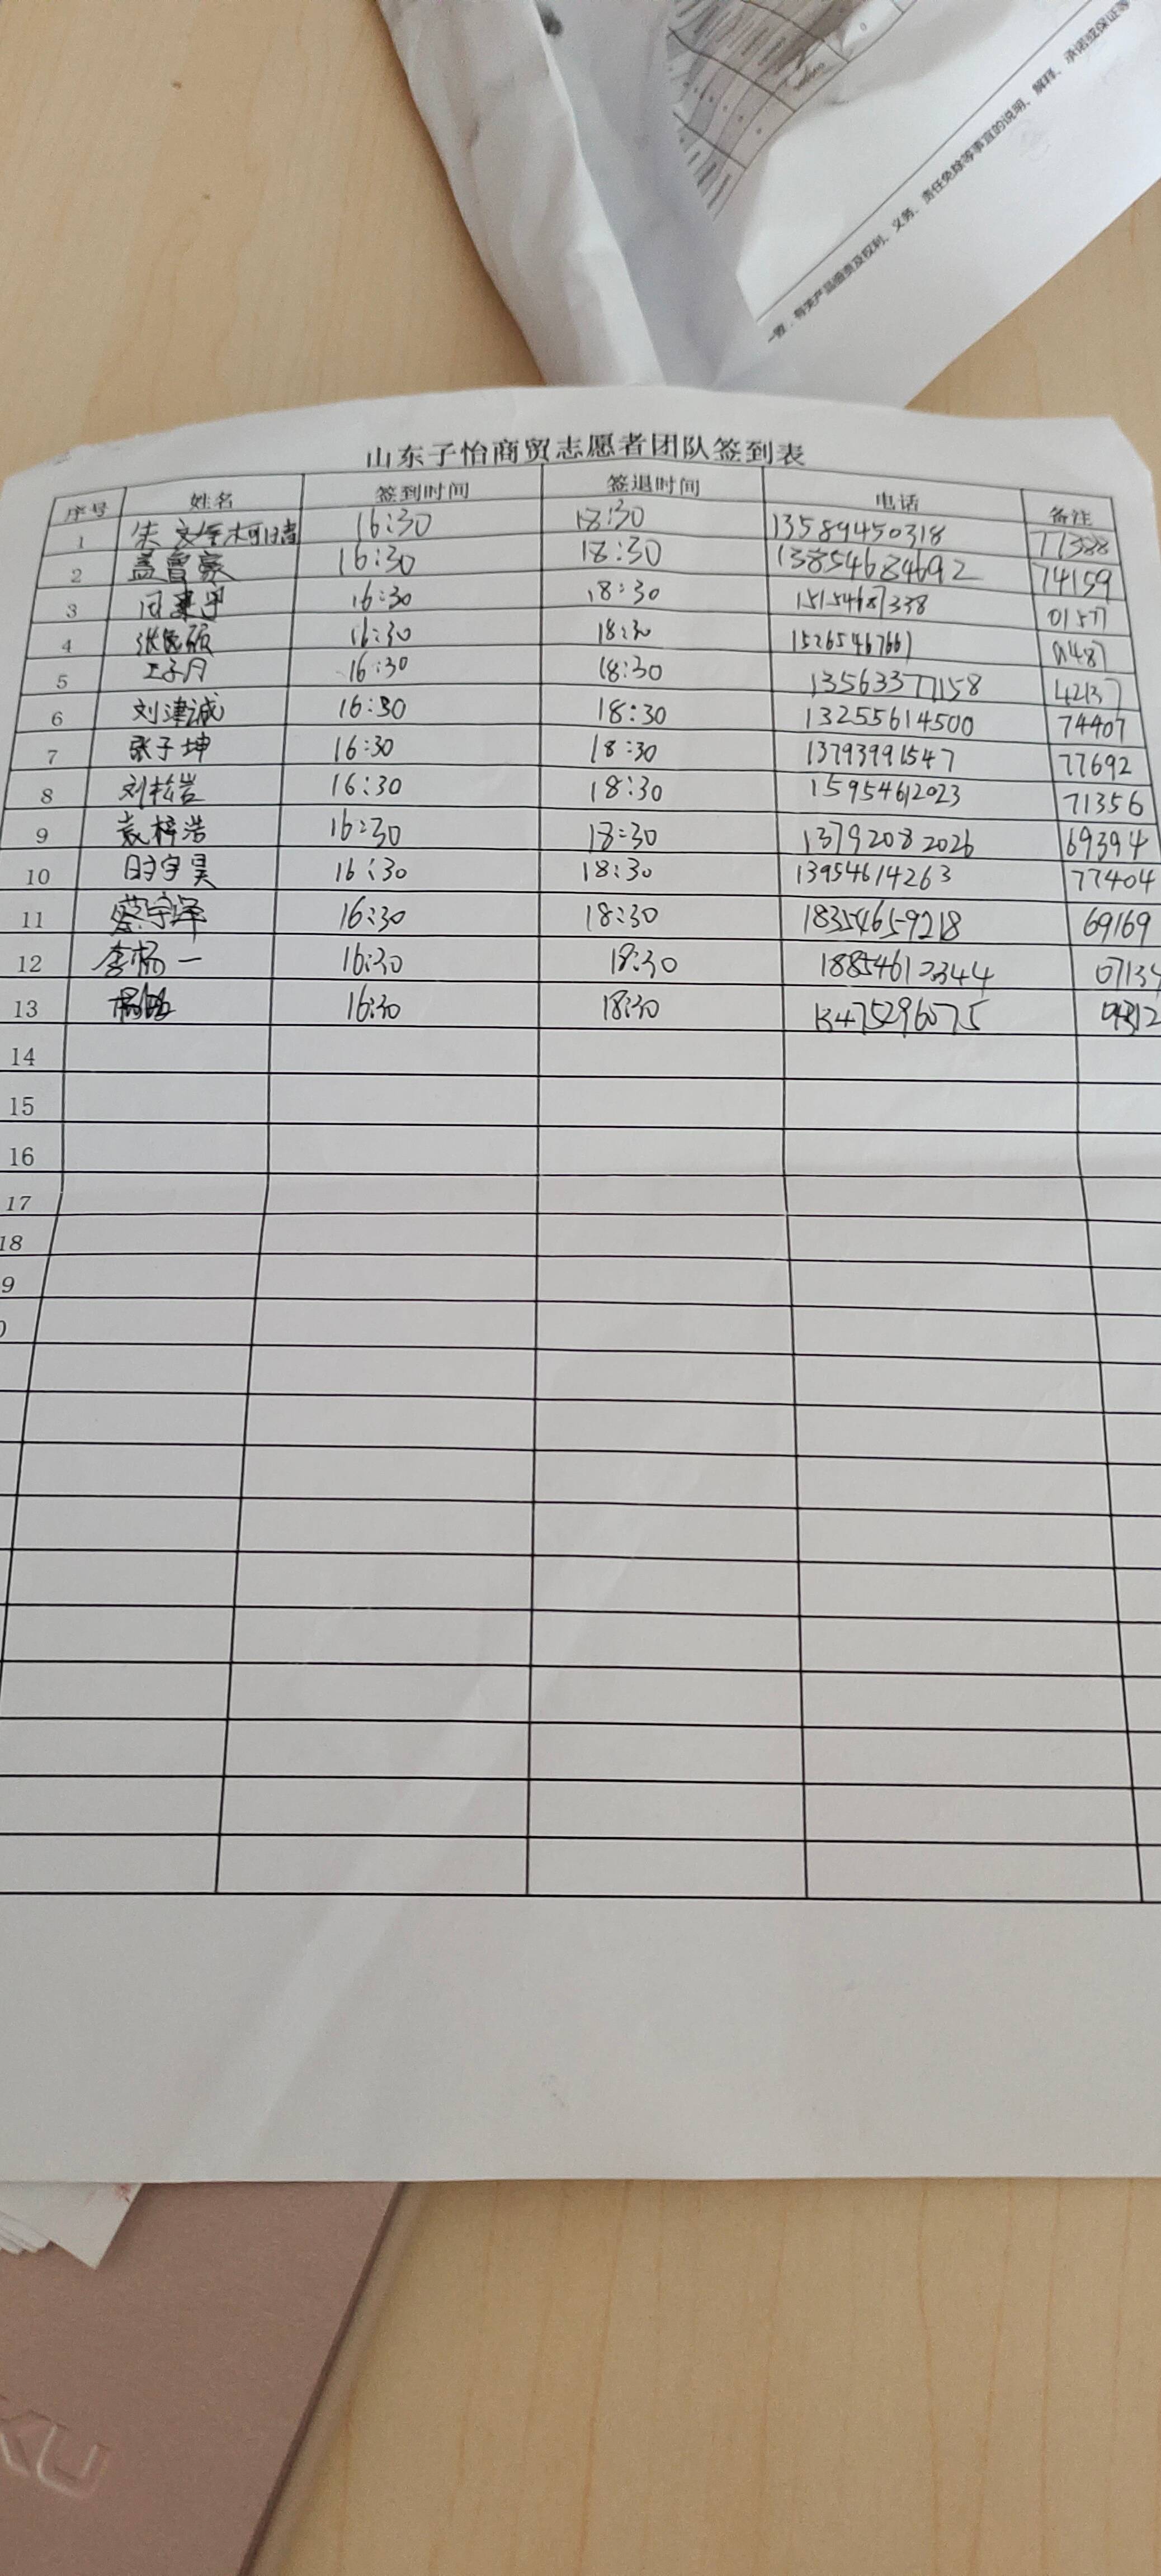 一致，有关产品细责及权利、义务、责任免除等事宜的说明、解释、承诺或保证等
山东子怡商贸志愿者团队签到表
序号 姓名 签到时间 签退时间 电话 备注
1 朱 16:30 18:30 13589450318 77388
2 盖曾豪 16:30 18:30 13854684692 74159
3 16:30 18:30 15154687338 01577
4 16:30 18:30 15265467661
5 王子月 16:30 18:30 13563377158 42137
6 刘津诚 16:30 18:30 13255614500 74407
7 张子坤 16:30 18:30 13793991547 77692
8 刘松岩 16:30 18:30 15954612023 71356
9 袁梓浩 16:30 18:30 13792082026 69394
10 时宇昊 16:30 18:30 13954614263 77404
11 蔡宇泽 16:30 18:30 18354659218 69169
12 李杨一 16:30 18:30 18854612344 07134
13 16:30 18:30 13475296075
14
15
16
17
18
9
0
KU